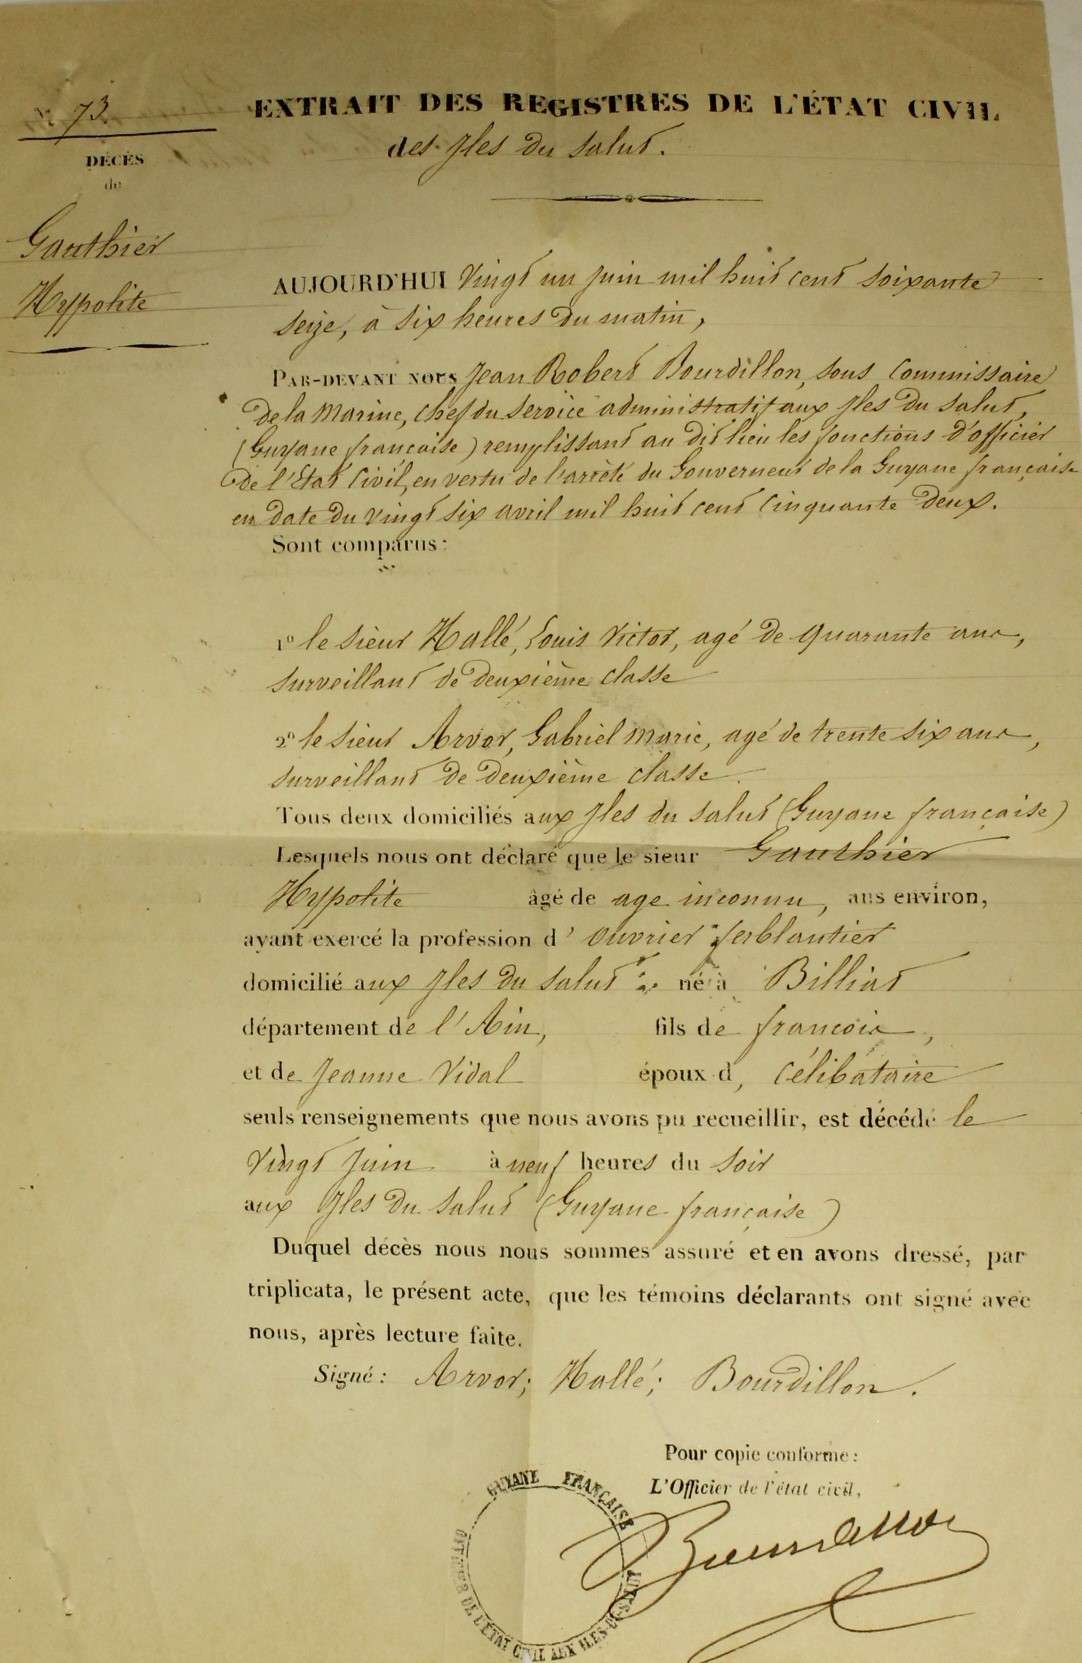 N° 73
DÉCÈS
de
Gauthier
Hyppolite
EXTRAIT DES REGISTRES DE L'ÉTAT CIVIL
des Iles du Salut.
AUJOURD'HUI vingt un juin mil huit cent soixante
seize, à six heures du matin,
PAR-DEVANT NOUS Jean Robert Bourdillon, sous Commissaire
de la Marine, Chef du Service administratif aux Iles du Salut,
(Guyane française) remplissant au dit lieu les fonctions d'officier
de l'Etat Civil, en vertu de l'arrêté du Gouverneur de la Guyane française
en date du vingt six avril mil huit cent cinquante deux.
Sont comparus :
1° le sieur Hallé, Louis Victor, agé de quarante ans,
surveillant de deuxième classe
2° le sieur Arvor, Gabriel Marie, agé de trente six ans,
surveillant de deuxième classe.
Tous deux domiciliés aux Iles du Salut (Guyane française)
Lesquels nous ont déclaré que le sieur Gauthier
Hyppolite âgé de age inconnu, ans environ,
ayant exercé la profession d' ouvrier ferblantier
domicilié aux Iles du Salut né à Billiat
département de l'Ain, fils de françois,
et de Jeanne Vidal époux d, célibataire
seuls renseignements que nous avons pu recueillir, est décédé le
vingt juin à neuf heures du soir
aux Iles du Salut (Guyane française)
Duquel décès nous nous sommes assuré et en avons dressé, par
triplicata, le présent acte, que les témoins déclarants ont signé avec
nous, après lecture faite.
Signé : Arvor; Hallé; Bourdillon.
Pour copie conforme :
L'Officier de l'état civil,
Bourdillon
GUYANE FRANÇAISE
OFFICIER DE L'ÉTAT CIVIL AUX ILES-DU-SALUT